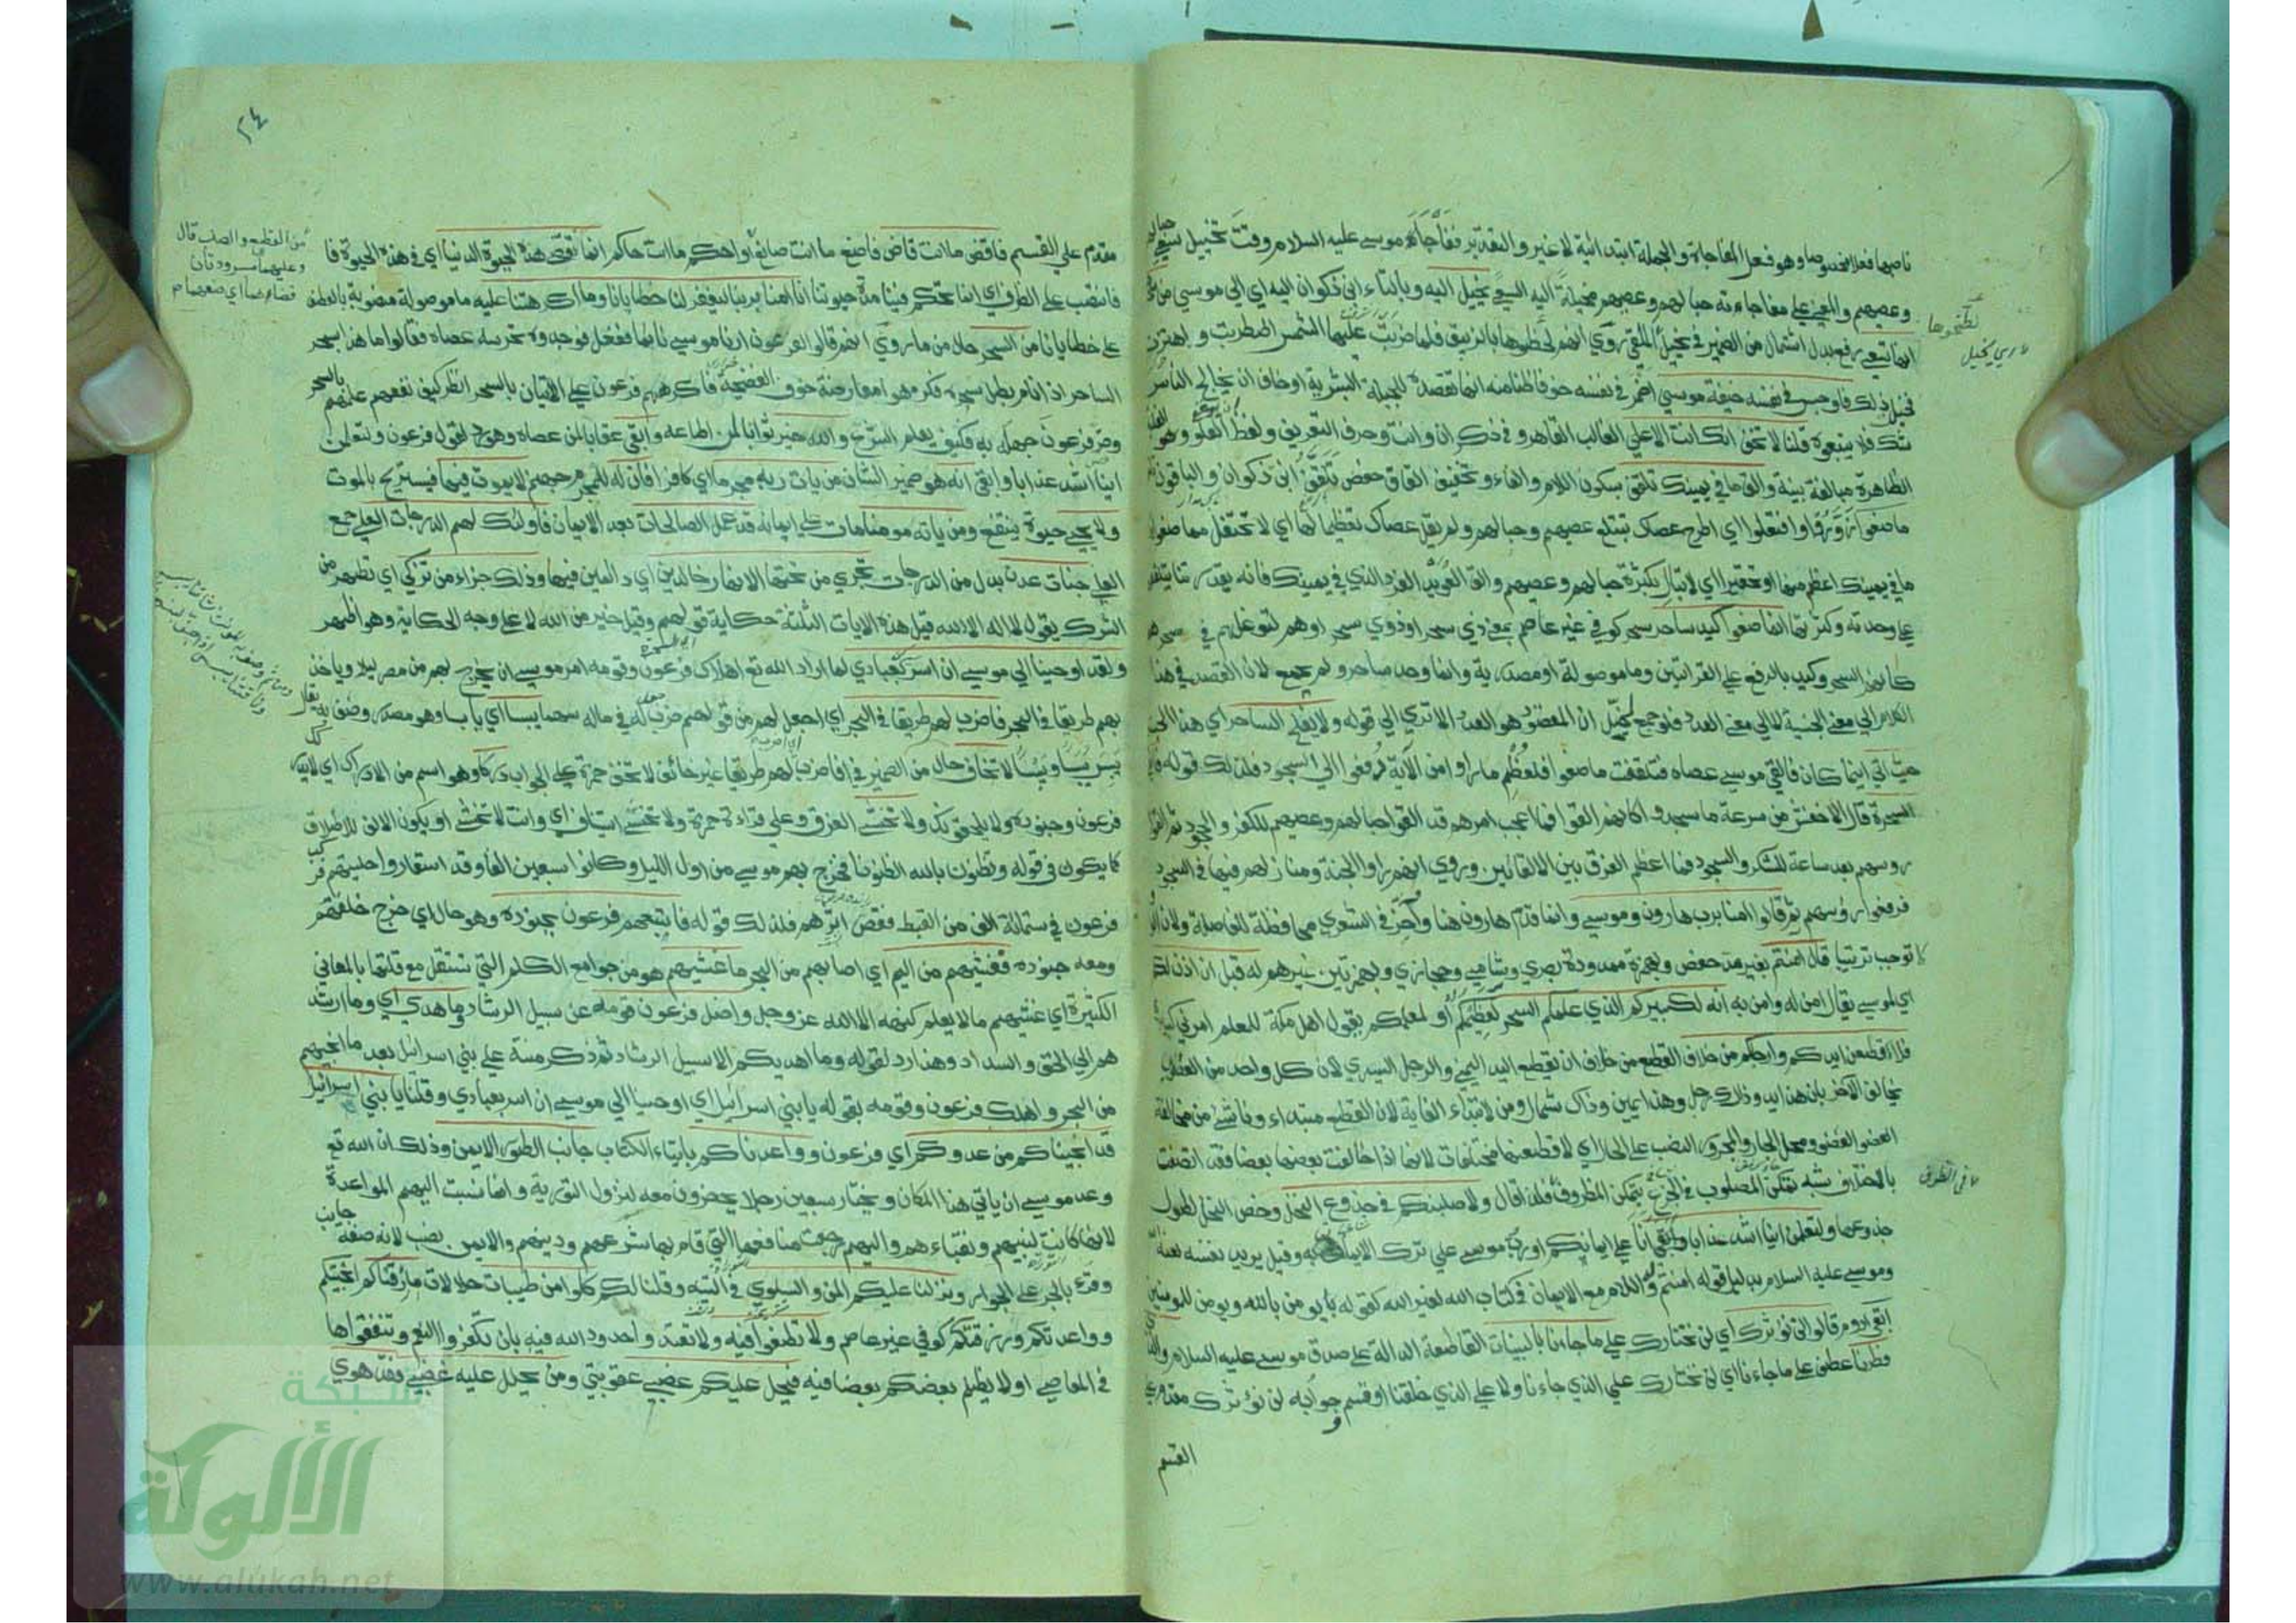 ناصبها فعلا مخصوصا وهو فعل المفاجاة والجملة ابتدائية لا غير والتقدير ففاجأ موسى عليه السلام وقت تخييل سعي حبالهم
وعصيهم والمعنى على مفاجاءته حبالهم وعصيهم مخيلة اليه السعي تخيل اليه وبالتاء ابن ذكوان اليه اي الى موسى من سحرهم
انها تسعى رفع بدل اشتمال من الضمير في يخيل اي الملقى روي انهم لطخوها بالزيبق فلما ضربت عليها الشمس اضطربت واهتزت
فخيل ذلك فاوجس في نفسه خيفة موسى اضمر في نفسه خوفا ظنا منه انها تقصده للجبلة البشرية او خاف ان يخالج الناس
شك فلا يتبعوه قلنا لا تخف انك انت الاعلى الغالب القاهر وفي ذكر ان وانت وحرف التعريف ولفظ العلو وهو الغلبة
الظاهرة مبالغة بينة والق ما في يمينك تلقف بسكون اللام والفاء وتخفيف القاف حفص تلقف ابن ذكوان والباقون تلقف
ما صنعوا زوروا وافتعلوا اي اطرح عصاك تبتلع عصيهم وحبالهم ولم يقل عصاك تعظيما لها اي لا تحتفل بما صنعوا فان
ما في يمينك اعظم منها او تحقيرا اي لا تبال بكثرة حبالهم وعصيهم والق العويد الفرد الذي في يمينك فانه بقدرتنا يتلقفها
على وحدته وكثرتها انما صنعوا كيد ساحر سحر كوفي غير عاصم بمعنى ذي سحر او ذوي سحر او هم لتوغلهم في سحرهم
كانهم السحر وكيد بالرفع على القراتين وما موصولة او مصدرية وانما وحد ساحر ولم يجمع لان القصد في هذا
الكلام الى معنى الجنسية لا الى معنى العدد فلو جمع لخيل ان المقصود هو العدد الا ترى الى قوله ولا يفلح الساحر اي هذا الجنس
حيث اتى اينما كان فالقى موسى عصاه فتلقفت ما صنعوا فلعظم ما راوا من الآية وقعوا الى السجود فذلك قوله فالقي
السحرة قال الاخفش من سرعة ما سجدوا كانهم القوا فما اعجب امرهم قد القوا حبالهم وعصيهم للكفر والجحود ثم القوا
روسهم بعد ساعة للشكر والسجود فما اعظم الفرق بين الالقائين وروي انهم راوا الجنة ومنازلهم فيها في السجود
فرفعوا رؤسهم ثم قالوا امنا برب هارون وموسى وانما قدم هارون هنا واخر في الشعري محافظة للفاصلة ولان الواو
لا توجب ترتيبا قال امنتم بغير مد حفص وبهمزة ممدودة بصري وشامي وحجازي وبهمزتين غيرهم له قبل ان اذن لكم
اي لموسى يقال امن له وامن به انه لكبيركم الذي علمكم السحر لعظيمكم او لمعلمكم يقول اهل مكة للمعلم امرني كبيري
فلاقطعن ايديكم وارجلكم من خلاف القطع من خلاف ان تقطع اليد اليمنى والرجل اليسرى لان كل واحد من العضوين
يخالف الآخر بان هذا يد وذلك رجل وهذا يمين وذاك شمال ومن لابتداء الغاية لان القطع مبتداء وناشئ من مخالفة
العضو العضو ومحل الجار والمجرور النصب على الحال اي لاقطعنها مختلفات لانها اذا خالفت بعضها بعضا فقد اتصفت
بالاختلاف شبه تمكن المصلوب في الجذع بتمكن المظروف فلذا قال ولاصلبنكم في جذوع النخل وخص النخل لطول
جذوعها ولتعلمن اينا اشد عذابا وابقى انا على ايمانكم او رب موسى على ترك الايمان به وقيل يريد نفسه لعنه الله
وموسى عليه السلام بدليل قوله امنتم له واللام مع الايمان في كتاب الله لغير الله كقوله يؤمن بالله ويومن للمومنين
ابقى ادوم قالوا لن نؤثرك اي لن نختارك على ما جاءنا بالبينات القاطعة الدالة على صدق موسى عليه السلام والذي
فطرنا عطف على ما جاءنا اي لن نختارك على الذي جاءنا ولا على الذي خلقنا او قسم وجوابه لن نؤثرك مقدم على
القسم
لطخوها
في الظرف
٢٤
مقدم على القسم فاقض ما انت قاض فاصنع ما انت صانع او احكم ما انت حاكم انما تقضي هذه الحيوة الدنيا اي في هذه الحيوة فا
فانتصب على الظرف اي انما تحكم فينا مدة حيوتنا انا امنا بربنا ليغفر لنا خطايانا وما اكرهتنا عليه ما موصولة منصوبة بالعطف
على خطايانا من السحر حال من ما روي انهم قالوا لفرعون ارنا موسى نايما ففعل فوجدوه تحرسه عصاه فقالوا ما هذا بسحر
الساحر اذا نام بطل سحره فكرهوا معارضته خوف الفضيحة فاكرههم فرعون على الاتيان بالسحر انظر كيف نفعهم علمهم بالسحر
وضر فرعون جهله به فكيف بعلم الشرع والله خير ثوابا لمن اطاعه وابقى عقابا لمن عصاه وهو رد لقول فرعون ولتعلمن
اينا اشد عذابا وابقى انه هو ضمير الشان من يات ربه مجرما اي كافرا فان له للمجرم جهنم لا يموت فيها فيستريح بالموت
ولا يحيى حيوة ينتفع ومن ياته مومنا مات على ايمانه قد عمل الصالحات بعد الايمان فاولئك لهم الدرجات العلى جمع
العليا جنات عدن بدل من الدرجات تجري من تحتها الانهار خالدين اي دايمين فيها وذلك جزاء من تزكى اي تطهر من
الشرك بقول لا اله الا الله قيل هذه الايات الثلثة حكاية قولهم وقيل خبر من الله لا على وجه الحكاية وهو اظهر
ولقد اوحينا الى موسى ان اسر بعبادي لما اراد الله تع اهلاك فرعون وقومه امر موسى ان يخرج بهم من مصر ليلا وياخذ
بهم طريق البحر فاضرب لهم طريقا في البحر اي اجعل لهم من قولهم ضرب له في ماله سهما يبسا اي يابسا وهو مصدر وصف به يقال
يبس يبسا ويبسا لا تخاف حال من الضمير في فاضرب اي اضرب لهم طريقا غير خائف لا تخف حمزة على الجواب دركا وهو اسم من الادراك اي لا يدركك
فرعون وجنوده ولا يلحقونك ولا تخشى الغرق وعلى قراءة حمزة ولا تخشى استيناف اي وانت لا تخشى او يكون الالف للاطلاق
كما يكون في قوله وتظنون بالله الظنونا فخرج بهم موسى من اول الليل وكانوا سبعين الفا وقد استعاروا حليهم فركب
فرعون في ستمائة الف من القبط فقص اثرهم فذلك قوله فاتبعهم فرعون بجنوده وهو حال اي خرج خلفهم
ومعه جنوده فغشيهم من اليم اي اصابهم من البحر ما غشيهم هو من جوامع الكلم التي تستقل مع قلتها بالمعاني
الكثيرة اي غشيهم ما لا يعلم كنهه الا الله عز وجل واضل فرعون قومه عن سبيل الرشاد وما هدى اي وما ارشد
هم الى الحق والسداد وهذا رد لقوله وما اهديكم الا سبيل الرشاد ثم ذكر منته على بني اسرائيل بعد ما انجيهم
من البحر واهلك فرعون وقومه بقوله يا بني اسرائيل اي اوحينا الى موسى ان اسر بعبادي وقلنا يا بني اسرائيل
قد انجيناكم من عدوكم اي فرعون وواعدناكم بايتاء الكتاب جانب الطور الايمن وذلك ان الله تع
وعد موسى ان ياتي هذا المكان ويختار سبعين رجلا يحضرون معه لنزول التورية وانما نسبت اليهم المواعدة
لانها كانت لنبيهم ونقباءهم واليهم رجعت منافعها التي قام بها شرعهم ودينهم والايمن نصب لانه صفة جانب
وقرء بالجر على الجوار ونزلنا عليكم المن والسلوى في التيه وقلنا لكم كلوا من طيبات حلالات ما رزقناكم انجيتكم
وواعدتكم ورزقتكم كوفي غير عاصم ولا تطغوا فيه ولا تتعدوا حدود الله فيه بان تكفروا النعم وتنفقوها
في المعاصي او لا يظلم بعضكم بعضا فيه فيحل عليكم غضبي عقوبتي ومن يحلل عليه غضبي فقد هوى
من القطع والصلب قال
شبكة
الألوكة
www.alukah.net